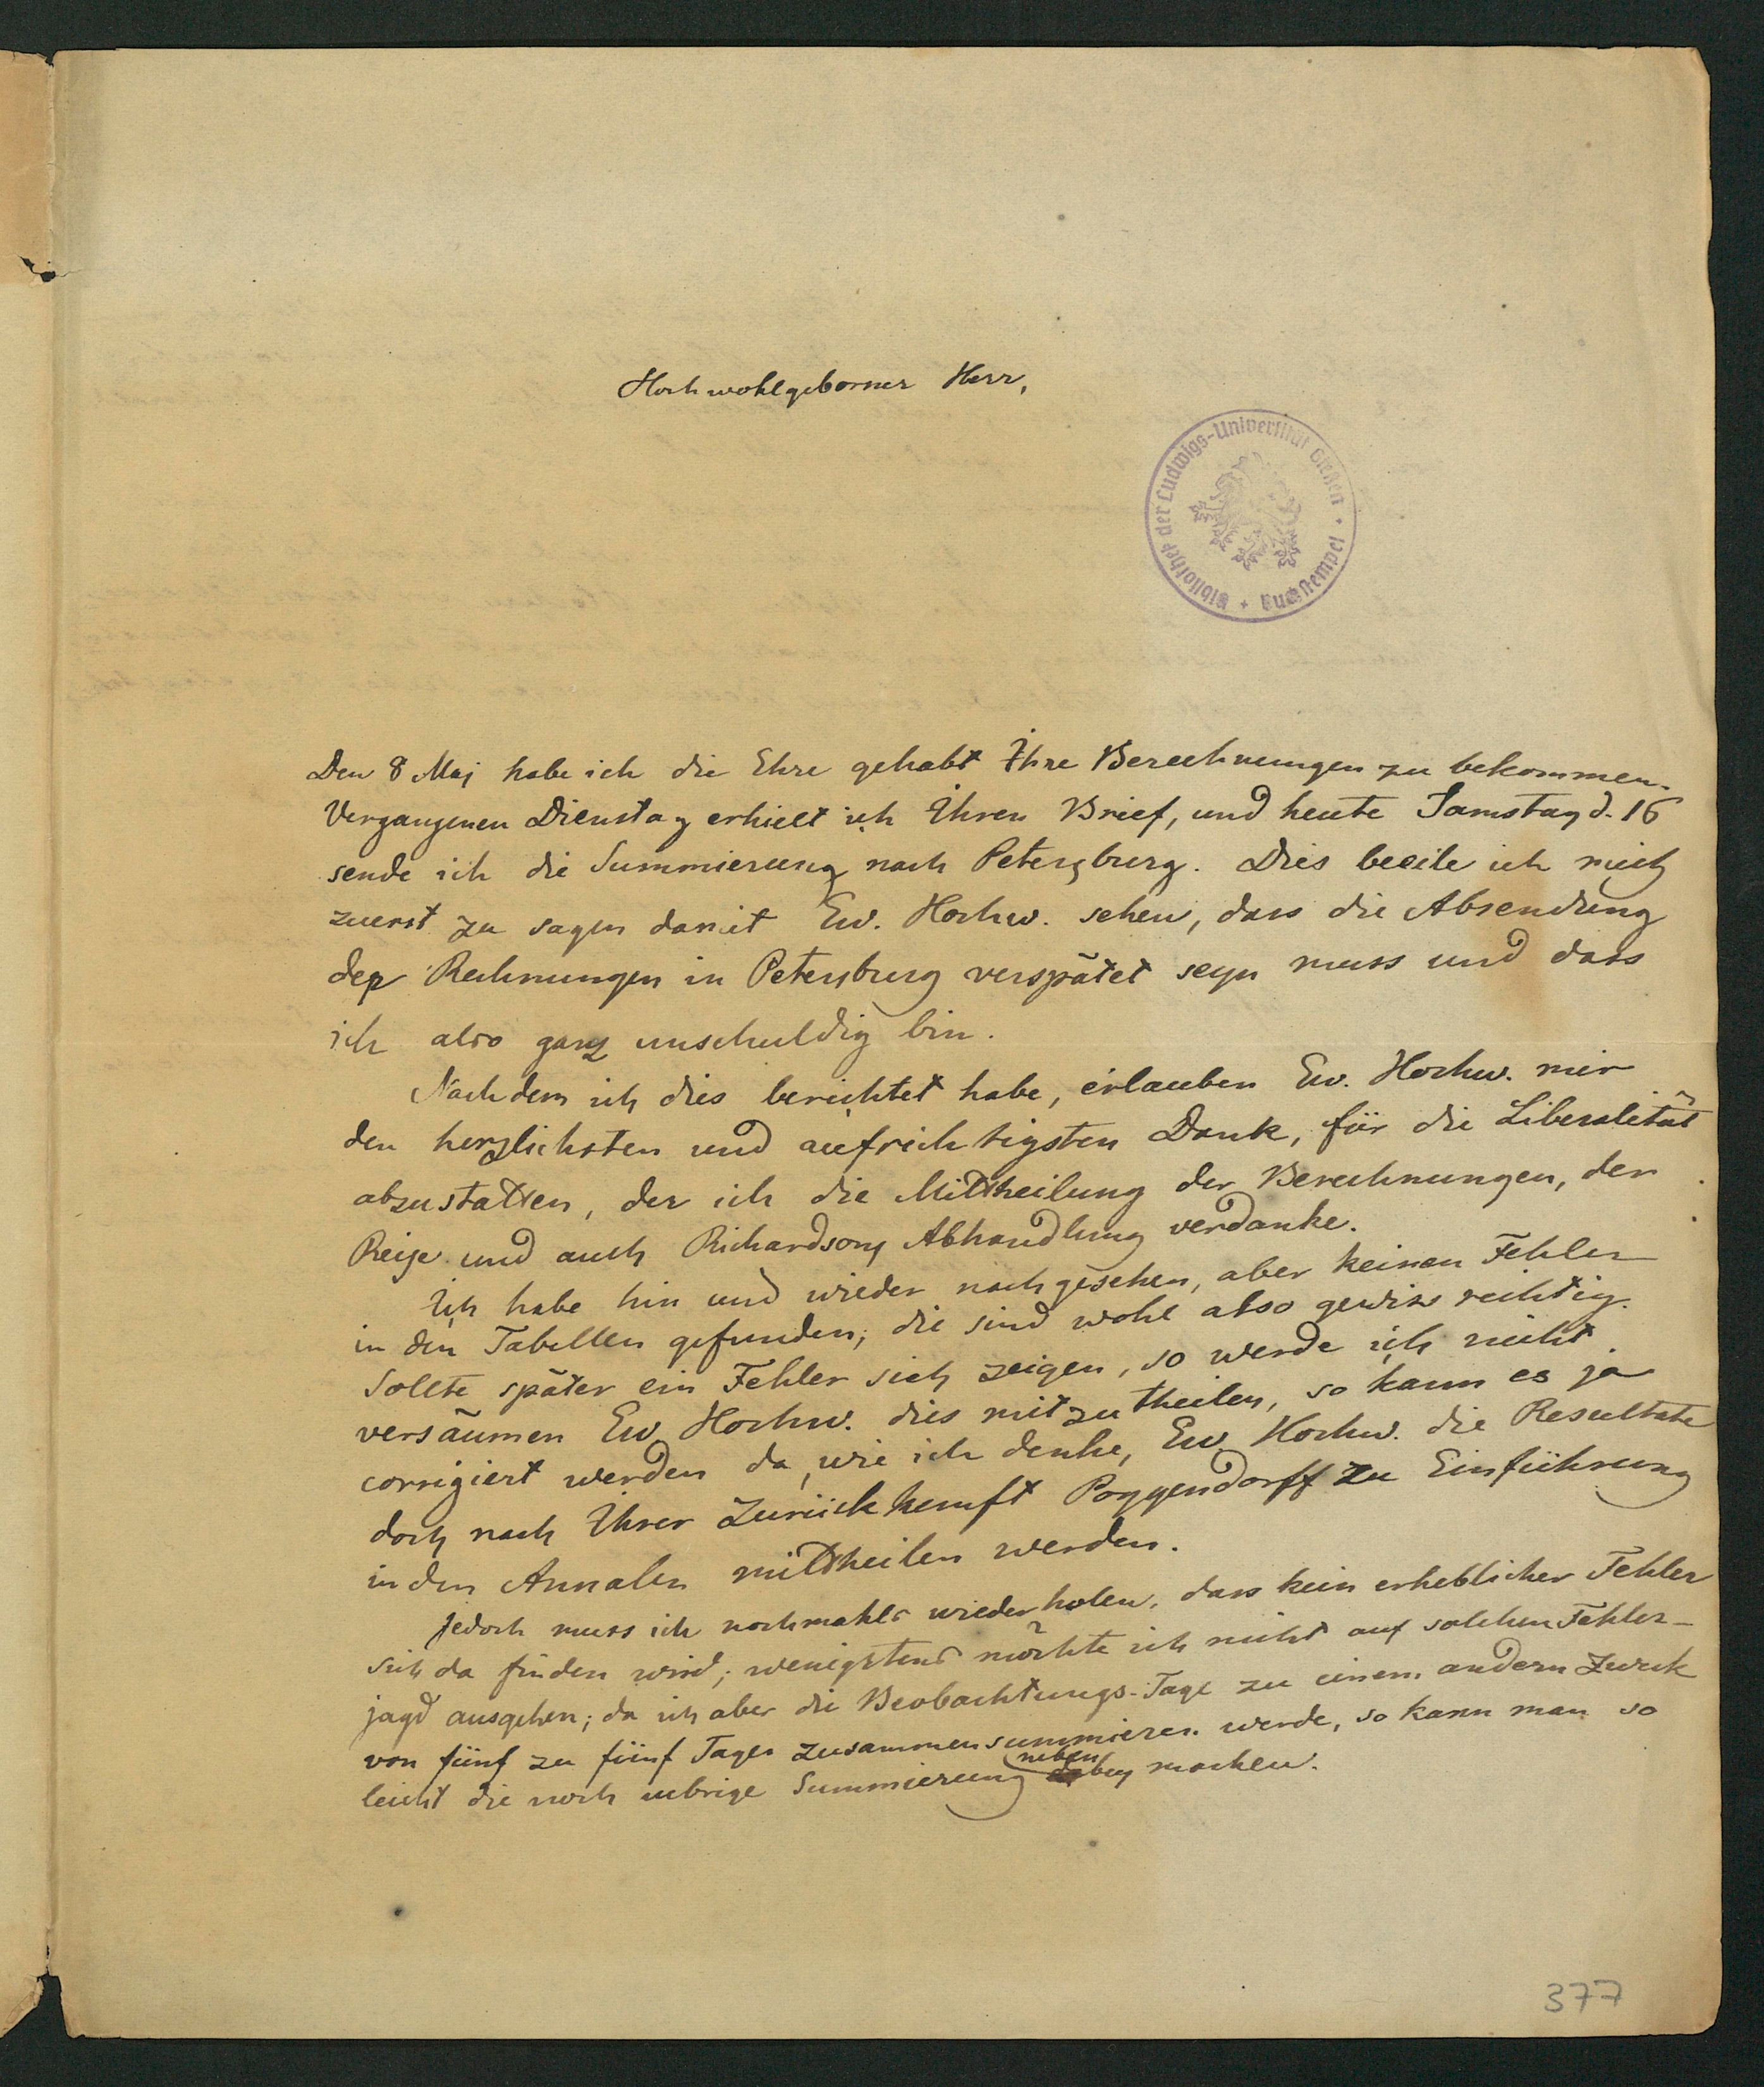 Hochwohlgeborner Herr,
Bibliothek der Ludwigs-Universität Gießen + Buchstempel +
Den 8 Maj habe ich die Ehre gehabt Ihre Berechnungen zu bekommen.
Vergangenen Dienstag erhielt ich Ihren Brief, und heute Samstag d. 16
sende ich die Summierung nach Petersburg. Dies beeile ich mich
zuerst zu sagen damit Ew. Hochw. sehen, dass die Absendung
der Rechnungen in Petersburg verspätet seyn muss und dass
ich also ganz unschuldig bin.
Nachdem ich dies berichtet habe, erlauben Ew. Hochw. mir
den herzlichsten und aufrichtigsten Dank, für die Liberalität
abzustatten, der ich die Mittheilung der Berechnungen, der
Reise und auch Richardsons Abhandlung verdanke.
Ich habe hin und wieder nachgesehen, aber keinen Fehler
in den Tabellen gefunden; die sind wohl also gewiss richtig.
Sollte später ein Fehler sich zeigen, so werde ich nicht
versäumen Ew. Hochw. dies mitzutheilen, so kann es ja
corrigiert werden da, wie ich denke, Ew. Hochw. die Resultate
doch nach Ihrer Zurückkunft Poggendorff zu Einführung
in den Annalen mittheilen werden.
Jedoch muss ich nochmahls wiederholen, dass kein erheblicher Fehler
sich da finden wird; wenigstens möchte ich nicht auf solchen Fehler-
jagd ausgehen; da ich aber die Beobachtungs-Tage zu einem andern Zweck
von fünf zu fünf Tagen zusammensummieren werde, so kann man so
leicht die noch uebrige Summierung neben bey machen.
377